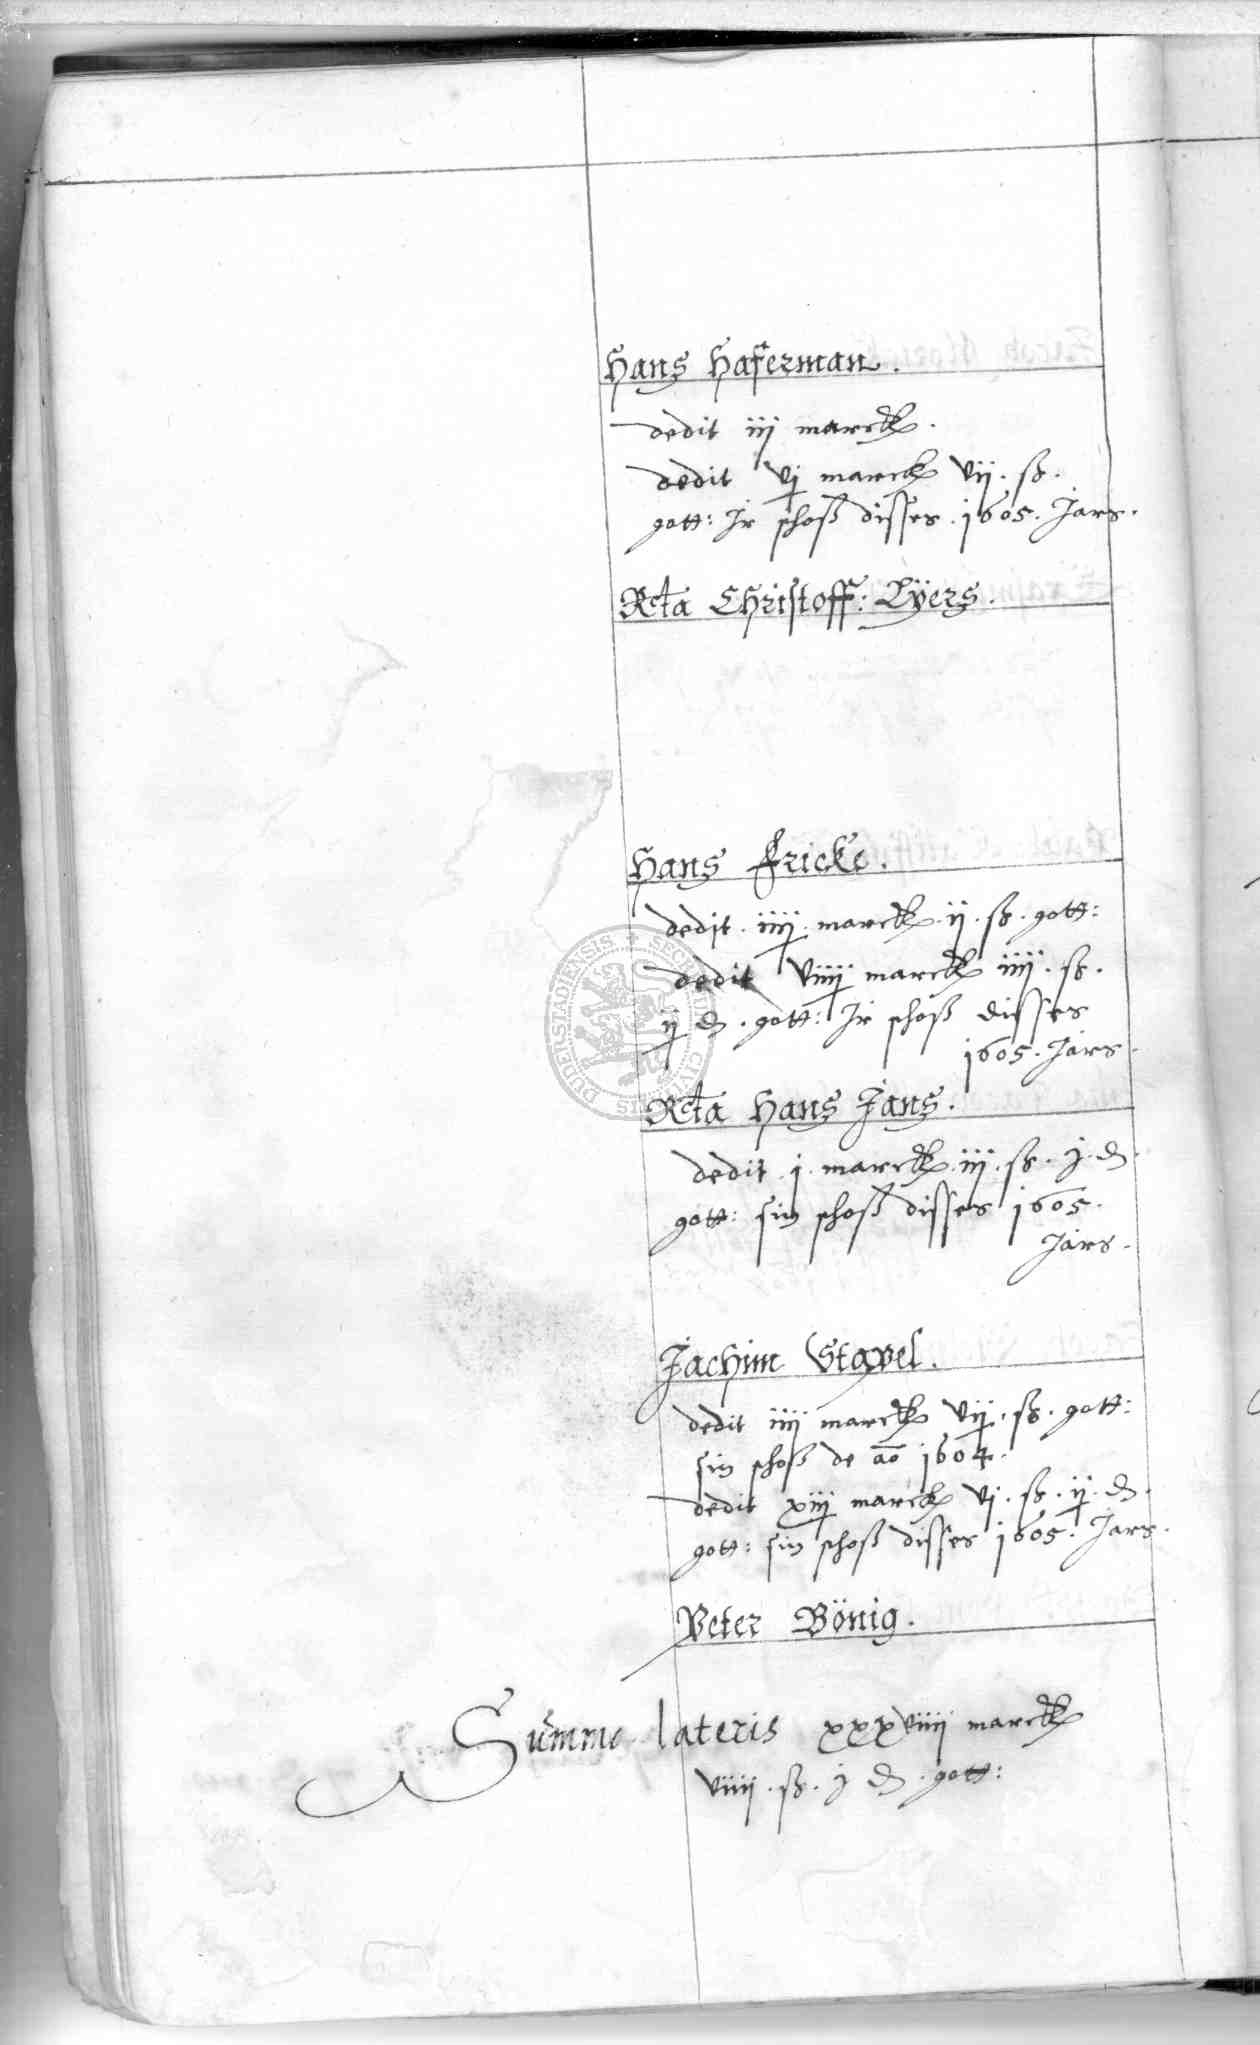 Hans Haferman.
dedit iij marck.
dedit vj marck vij. ß.
gott: Ir schoß disses. 1605. Jars.
Rcta Christoff: Lÿers.
Hans Fricke.
dedit. iiij. marck. ij. ß. gott:
dedit viiij marck iiij. ß.
ij d. gott: Ir schoß disses
1605. Jars.
Rcta Hans Jans.
dedit. j. marck. iij. ß. j. d.
gott: sin schoß disses 1605.
Jars.
Jachim Stapel.
dedit iiij marck vij. ß. gott:
sin schoß de ao 1604.
dedit xiij marck vj. ß. ij. d.
gott: sin schoß disses 1605. Jars.
Peter Bönig.
Summe lateris xxxviiij marck
viiij. ß. j d. gott:
SECRETUM CIVITATIS DUDERSTADIENSIS